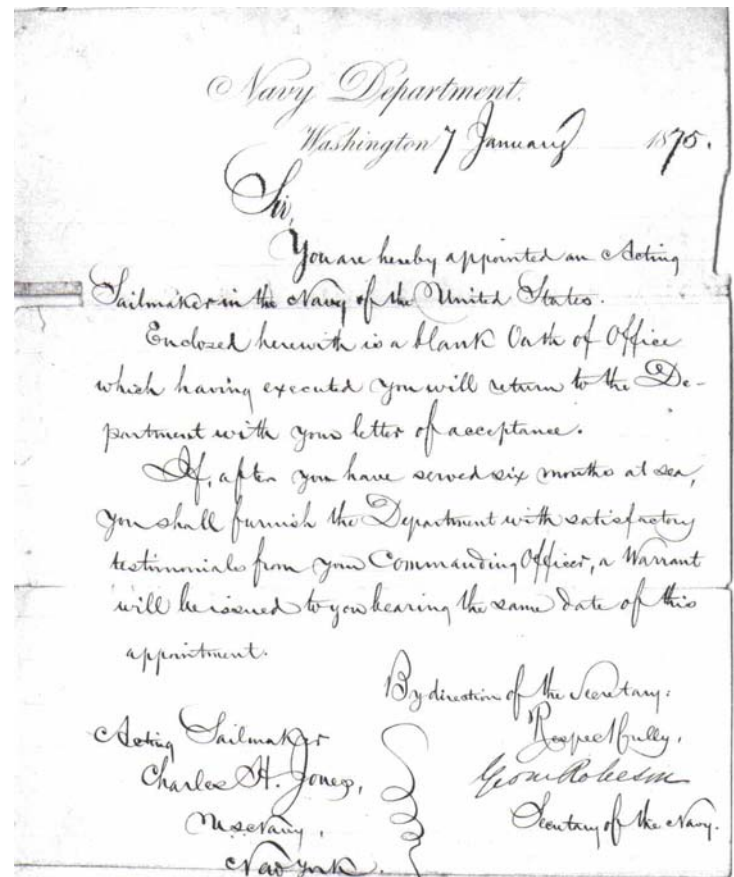 Navy Department.
Washington 7 January 1875.
Sir,
You are hereby appointed an Acting
Sailmaker in the Navy of the United States.
Enclosed herewith is a blank Oath of Office
which having executed you will return to the De-
partment with your letter of acceptance.
If, after you have served six months at sea,
you shall furnish the Department with satisfactory
testimonials from your Commanding Officer, a Warrant
will be issued to you bearing the same date of this
appointment.
By direction of the Secretary:
Respectfully,
Geo M Robeson
Secretary of the Navy.
Acting Sailmaker
Charles H. Jones,
U.S. Navy,
New York.